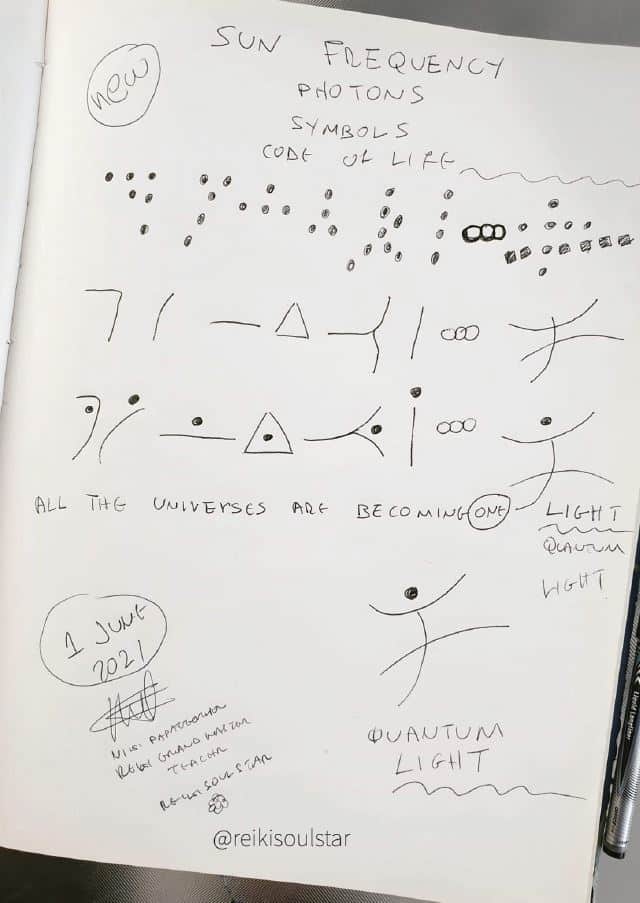 new
SUN FREQUENCY
PHOTONS
SYMBOLS
CODE OF LIFE
ALL THE UNIVERSES ARE BECOMING ONE LIGHT
QUANTUM
LIGHT
1 JUNE
2021
QUANTUM
LIGHT
REIKI GRAND MASTER
TEACHER
REIKISOULSTAR
@reikisoulstar